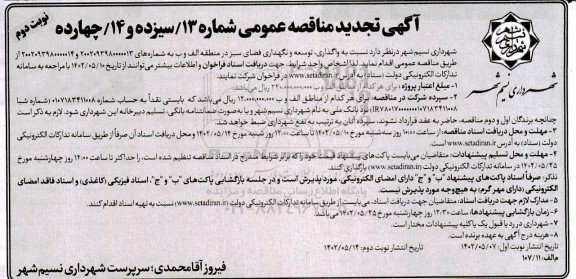 نوبت دوم
آگهی تجدید مناقصه عمومی شماره ۱۳/سیزده و ۱۴/چهارده
شهرداری نسیم شهر
شهرداری نسیم‌شهر درنظر دارد نسبت به واگذاری، توسعه و نگهداری فضای سبز در منطقه الف و ب به شماره‌های ۲۰۰۲۰۹۳۹۸۰۰۰۰۰۱۳ و ۲۰۰۲۰۹۳۹۸۰۰۰۰۰۱۴ از
طریق مناقصه عمومی اقدام نماید. لذا اشخاص واجد شرایط، جهت دریافت اسناد فراخوان و اطلاعات بیشتر می‌توانند از تاریخ ۱۴۰۲/۰۵/۱۰ با مراجعه به سامانه
تدارکات الکترونیکی دولت (ستاد) به آدرس: www.setadiran.ir در فراخوان شرکت نمایند.
۱- مبلغ اعتبار پروژه: برای هر کدام از مناطق الف و ب ۲۴۰,۰۰۰,۰۰۰,۰۰۰ ریال می‌باشد.
۲- سپرده شرکت در مناقصه: برای هر کدام از مناطق الف و ب ۱۲,۰۰۰,۰۰۰,۰۰۰ ریال می‌باشد که بایستی نقداً به حساب شماره ۰۱۰۷۱۸۳۴۱۱۰۰۸ (شماره شبا
نزد بانک ملی به نام شهرداری نسیم شهر و یا به صورت ضمانتنامه بانکی، تسلیم دبیرخانه این شهرداری شود. لازم به ذکر است
چنانچه برندگان اول و دوم مناقصه، حاضر به عقد قرارداد نشوند، سپرده آنان به ترتیب به نفع شهرداری ضبط خواهد شد.
۳- مهلت و محل دریافت اسناد مناقصه: از ساعت ۱۰:۰۰ روز سه‌شنبه مورخ ۱۴۰۲/۰۵/۱۰ تا ساعت ۱۲:۰۰ روز شنبه مورخ ۱۴۰۲/۰۵/۱۴ و محل دریافت اسناد آن صرفاً از طریق سامانه تدارکات الکترونیکی
دولت (ستاد) به آدرس www.setadiran.ir است.
۴- مهلت و محل تسلیم پیشنهادات: متقاضیان می‌بایست پاکت‌های پیشنهاد قیمت خود را که برابر شرایط مندرج در اسناد مناقصه تنظیم شده است، را حداکثر تا ساعت ۱۲:۰۰ روز چهارشنبه مورخ
۱۴۰۲/۰۵/۲۵ در سامانه تدارکات الکترونیکی دولت www.setadiran.ir بارگذاری کنند.
تذکر: صرفاً اسناد پاکت‌های پیشنهاد "ب" و "ج" دارای امضای الکترونیکی، مورد پذیرش است و در جلسه بازگشایی پاکت‌های "ب" و "ج"، اسناد فیزیکی (کاغذی) و اسناد فاقد امضای
الکترونیکی (دارای مهر گرم) به هیچ‌وجه مورد پذیرش نیست.
۵- مدارک لازم جهت دریافت اسناد: متقاضیان جهت دریافت اسناد، می‌بایست از طریق سامانه تدارکات الکترونیکی دولت (www.setadiran.ir) نسبت به تهیه اسناد اقدام کنند.
۶- زمان بازگشایی پیشنهادها، ساعت ۱۲:۳۰ روز چهارشنبه مورخ ۱۴۰۲/۰۵/۲۵ می‌باشد.
۷- شهرداری در رد یا قبول یک یا کلیه پیشنهادات مختار است.
۸- هزینه درج آگهی به عهده برنده است.
تاریخ انتشار نوبت اول: ۱۴۰۲/۰۵/۰۷ تاریخ انتشار نوبت دوم: ۱۴۰۲/۰۵/۱۴
م.الف: ۱۰۷/۱۱
فیروز آقامحمدی؛ سرپرست شهرداری نسیم شهر